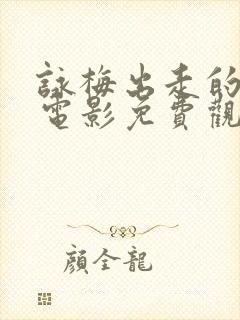 詠梅出走的
電影免費觀
顏全龍